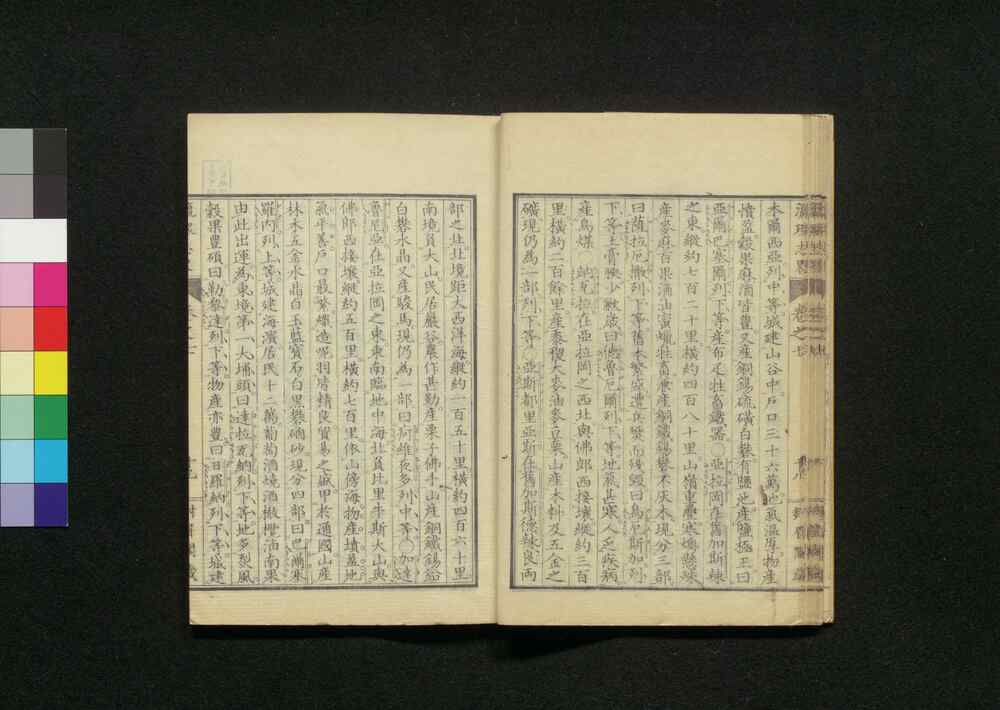 本爾西亞列中等城建山谷中戶口三十六萬也氣溫厚物產
墳盈穀果麻酒皆豐又產銅錫硫磺白礬有鹽地產鹽極王曰
亞爾巴塞爾列下等產布疋牲畜鐵器○亞拉岡在舊加斯辣
之東縱約七百二十里橫約四百八十里山嶺重疊寒燠懸殊
產麥麻百果酒油蜜蠟牲畜兼產銅鐵錫礬不灰木現分三部
曰薩拉厄撒列下等舊本繁盛遭兵燹而後毀曰烏厄斯加列
下等土膏腴少瘠鹵曰德魯厄爾列下等地氣甚寒人乏疾病
產烏煤○納瓦拉在亞拉岡之西北與佛郎西接壤縱約三百
里橫約二百餘里產黍稷大麥油麥豆粟山產木料及五金之
礦現仍為一部列下等○亞斯都里亞斯在舊加斯德辣良兩
部之北北境距大西洋海縱約一百五十里橫約四百六十里
南境負大山民居巖谷農作甚勤產栗子佛手山產銅鐵錫鉛
白礬水晶又產駿馬現仍為一部曰疴維夜多列中等○加達
魯尼亞在亞拉岡之東東南臨地中海北負比里牛斯大山與
佛郎西接壤縱約五百里橫約七百里依山傍海物產墳盈地
氣平善戶口最繁織造呢羽皆精良貿易之盛甲於通國山產
林木五金水晶白玉藍寶石白黑礬硇砂現分四部曰巴爾塞
羅內列上等城建海濱居民十二萬葡萄酒燒酒橄欖油南果
由此出運為東境第一大埔頭曰達拉瓦納列下等地多烈風
穀果豐碩曰勒黎達列下等物產亦豐曰日羅納列下等城建